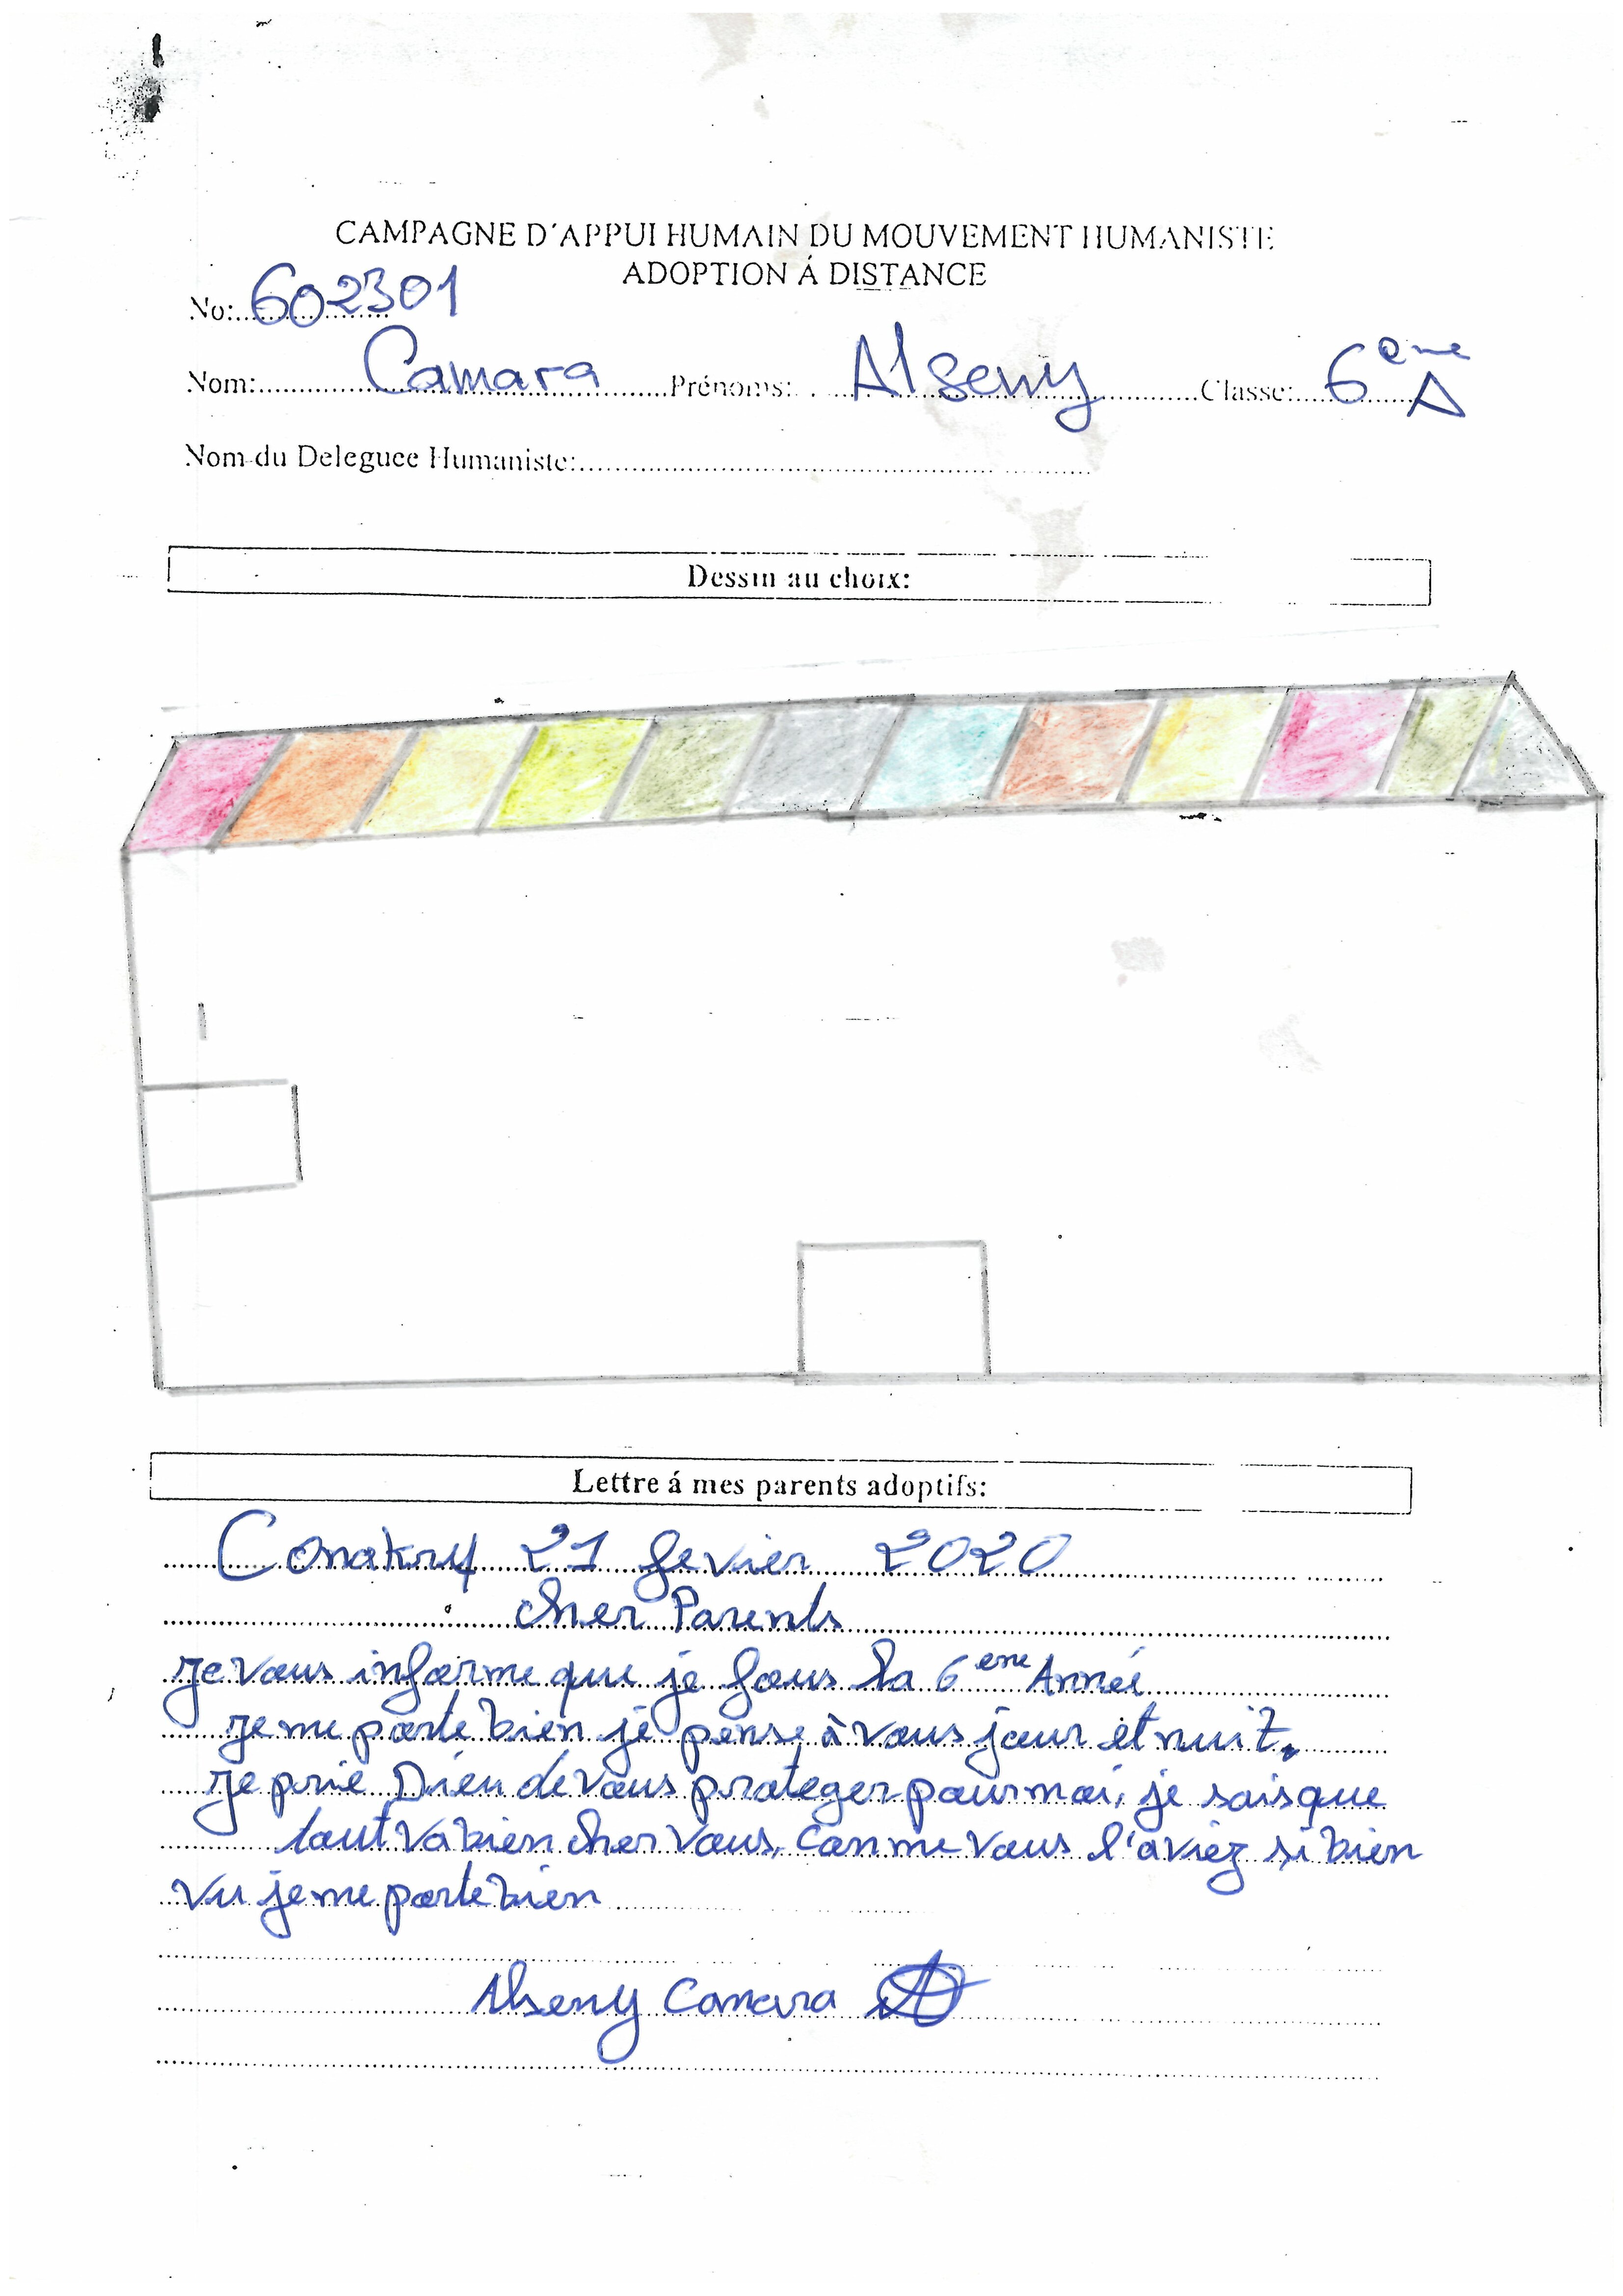 CAMPAGNE D'APPUI HUMAIN DU MOUVEMENT HUMANISTE
ADOPTION Á DISTANCE
No: 602301
Nom: Camara Prénoms: Alseny Classe: 6ème A
Nom du Deleguee Humaniste:
Dessin au choix:
Lettre á mes parents adoptifs:
Conakry 21 fevier 2020
cher Parents
je vous informe que je fous la 6ème Année
je me porte bien je pense à vous jour et nuit.
je prie Dieu de vous proteger pour moi, je sais que
tout va bien cher vous, comme vous l'aviez si bien
vu je me porte bien
Alseny Camara